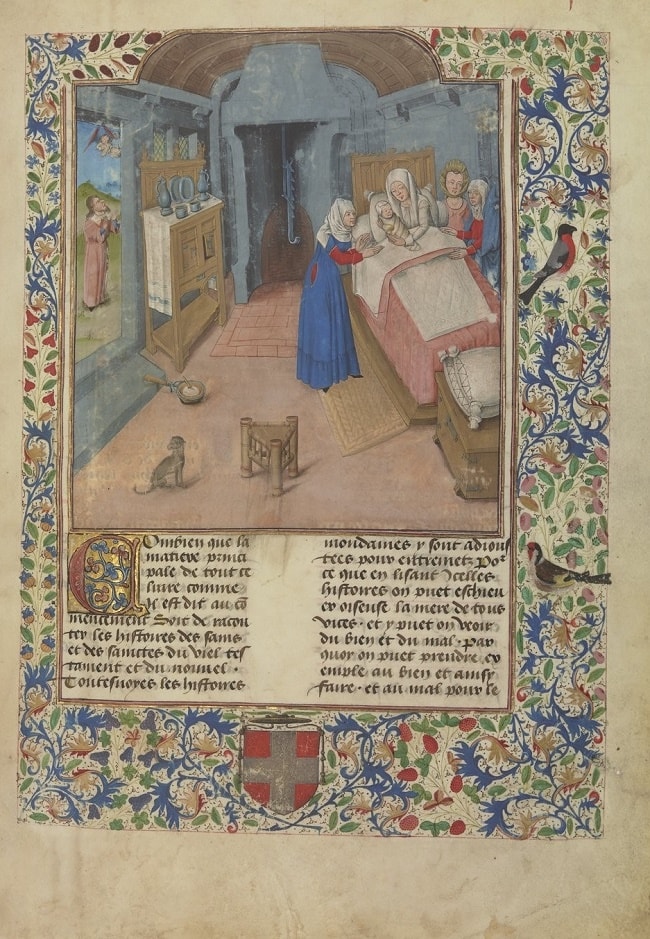 Combien que la
matiere princi
pale de tout ce
liure comme
il est dit au com̄
mencement Soit de racon
ter les histoires des sains
et des sainctes du viel tes
tament et du nouuel .
Toutesuoyes les histoires
mondaines y sont adious
tees pour
ce que en lisant Jcelles
histoires on puet escheu
er oiseuse la mere de tous
vices . et y puet on veoir
du bien et du mal . par
quoy on puet prendre ex
emple au bien et ainsy
faire . et au mal pour le